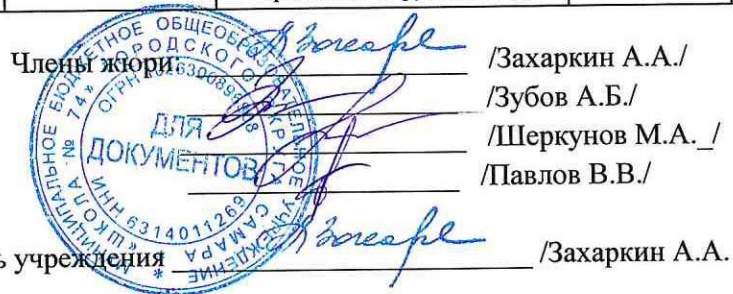 Члены жюри: /Захаркин А.А./
/Зубов А.Б./
/Шеркунов М.А._/
/Павлов В.В./
ь учреждения /Захаркин А.А.
МУНИЦИПАЛЬНОЕ БЮДЖЕТНОЕ ОБЩЕОБРАЗОВАТЕЛЬНОЕ УЧРЕЖДЕНИЕ *
"ШКОЛА № 74" ГОРОДСКОГО ОКРУГА САМАРА
ОГРН
ИНН 6314011269
ДЛЯ
ДОКУМЕНТОВ